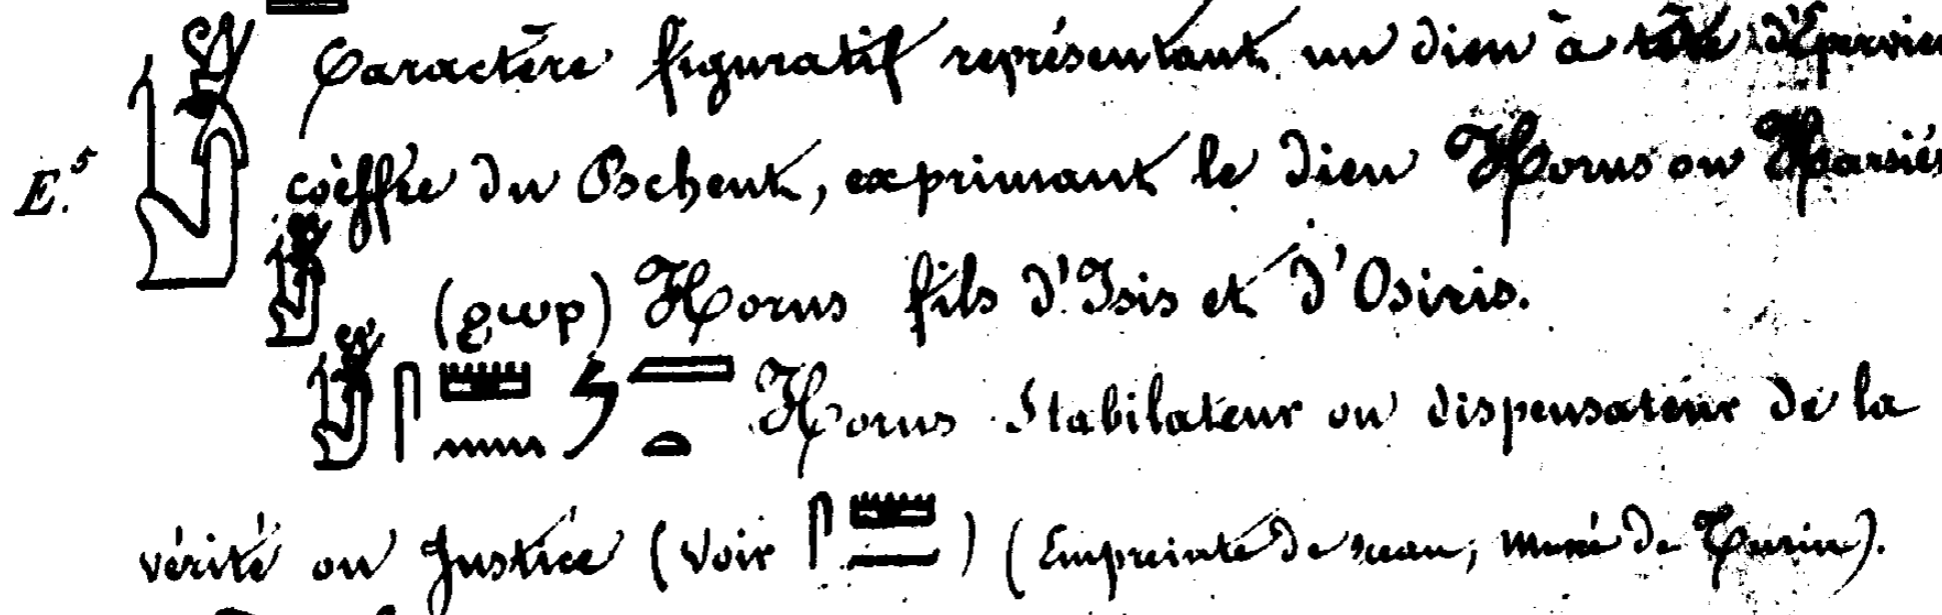 Caractère figuratif représentant un dieu à tête d'Épervier
E.5 coèffée du Pschent, exprimant le dieu Horus ou Harsiés
(ϩωρ) Horus fils d'Isis et d'Osiris.
Horus Stabilateur ou dispensateur de la
vérité ou Justice (Voir 𓋴𓏠𓈖) (Empreinte de sceau; musée de Turin).